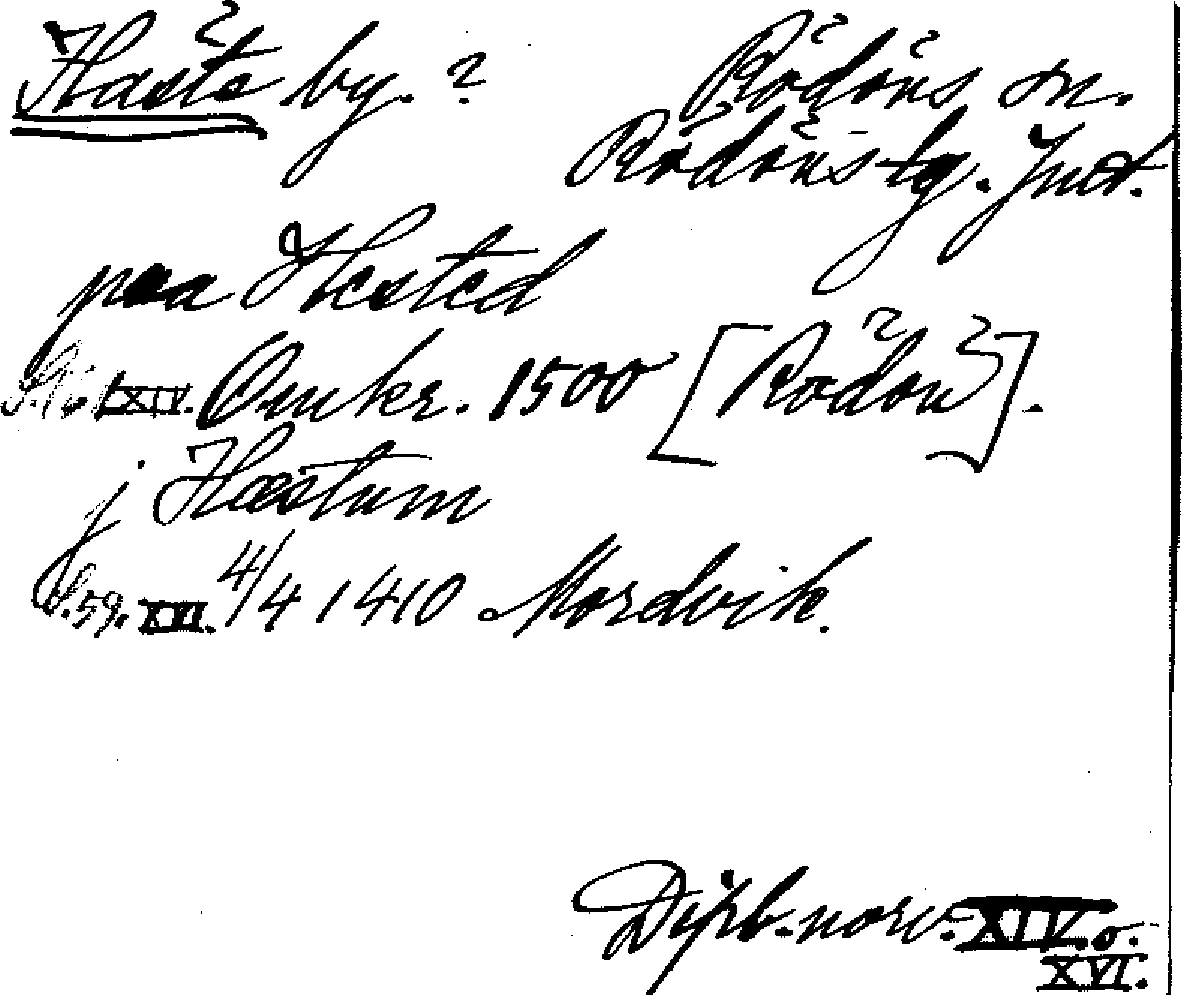 Håste by. ? Rödöns sn.
Rödöns tg. Jmt.
paa Hested
XIV. Omkr. 1500 [Rödön].
j Hæstum
S. 59. XVI. 4/4 1410 Mordvik.
Dipl. norv. XIV. o.
XVI.